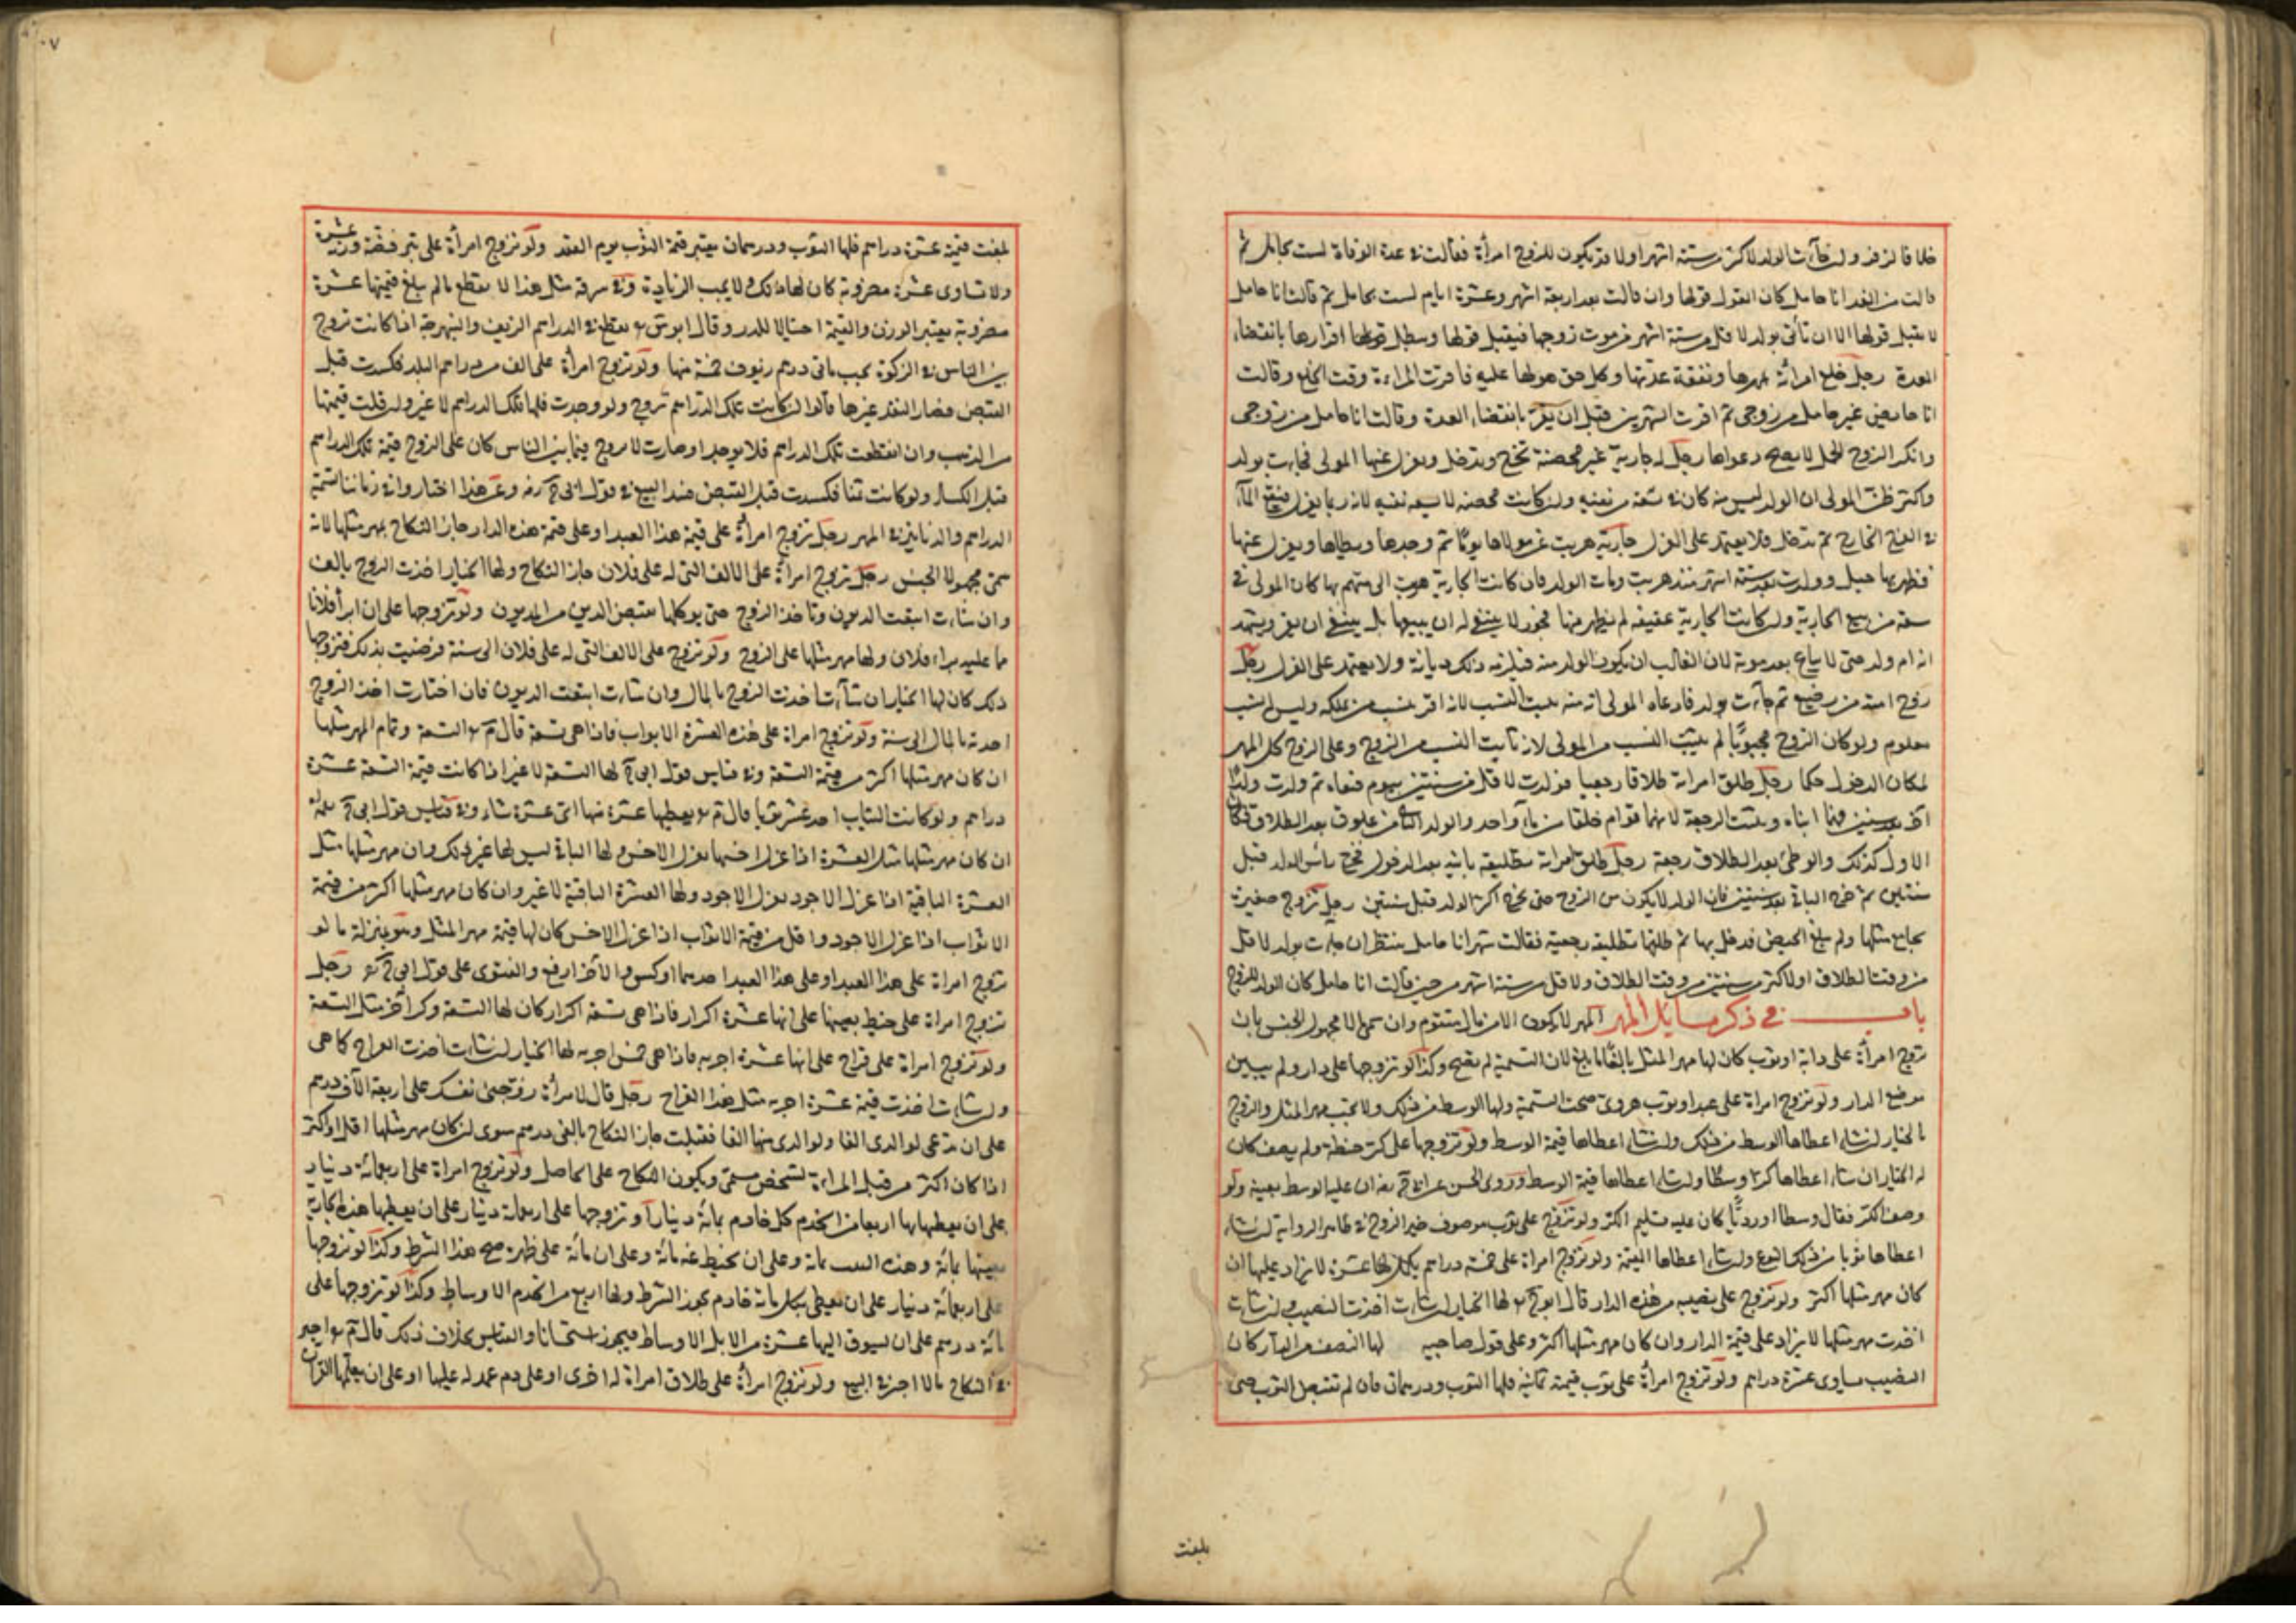 خلافا لزفر وان جاءت بالولد لاكثر من ستة اشهر اولا قد يكون للزوج امرأة فقالت في عدة الوفاة لست بحامل ثم
قالت من الغد انا حامل كان القول قولها وان قالت بعد اربعة اشهر وعشرة ايام لست بحامل ثم قالت انا حامل
لا يقبل قولها الا ان تأتي بولد لاقل من ستة اشهر من موت زوجها فيقبل قولها ويبطل قولها اقرارها بانقضاء
العدة رجل خلع امرأته بمهرها ونفقة عدتها وكل حق هو لها عليه فاقرت المراءة وقت الخلع وقالت
انا حايض غير حامل من زوجي ثم اقرت الشهرين قبل ان تقر بانقضاء العدة وقالت انا حامل من زوجي
وانكر الزوج الحمل لا يصح دعواها رجل له جارية غير محصنة تخرج وتدخل ويعزل عنها المولى فجاءت بولد
واكثر ظن المولى ان الولد ليس منه كان في سعة من نفيه وان كانت محصنه لا يسعه نفيه لانه ربما يعزل فيقع الماء
في الفرج الخارج ثم يدخل فلا يعتمد على العزل جارية هربت من مولاها يوما ثم وجدها ويطاها ويعزل عنها
فظهر بها حبل وولدت بعد ستة اشهر منذ هربت ومات الولد فان كانت الجارية هربت الى متهم بها كان المولى في
سعة من بيع الجارية وان كانت الجارية عفيفه لم يظهر منها فجور لا ينبغي له ان يبيعها بل ينبغي ان يقر ويشهد
انه ام ولد حتى لا تباع بعد موته لان الغالب ان يكون الولد منه فيلزمه ذلك ديانة ولا يعتمد على العزل رجل
زوج امته من رضيع ثم جاءت بولد فادعاه المولى انه منه يثبت النسب لانه اقر بنسب من يملكه وليس له نسب
معلوم ولو كان الزوج مجبوبا لم يثبت النسب من المولى لانه ثابت النسب من الزوج وعلى الزوج كل المهر
لمكان الدخول حكما رجل طلق امراته طلاقا رجعيا فولدت لاقل من سنتين بيوم فنفاه ثم ولدت ولدا
اخر بعد سنتين فهما ابناه ويثبت الرجعة لانهما توام خلقا من ماء واحد والولد الثاني من علوق بعد الطلاق فكان
الاول كذلك والوطي بعد الطلاق رجعة رجل طلق امراته تطليقه باينه بعد الدخول فخرج راس الولد قبل
سنتين ثم خرج الباقي بعد سنتين فان الولد لا يكون من الزوج حتى يخرج اكثر الولد قبل سنتين رجل تزوج صغيرة
يجامع مثلها ولم تبلغ الحيض فدخل بها ثم طلقها تطليقه رجعية فقالت شهرا انا حامل ينتظر ان جاءت بولد لاقل
من وقت الطلاق او لاكثر من سنتين من وقت الطلاق ولاقل من ستة اشهر من حين قالت انا حامل كان الولد للزوج
باب في ذكر مسائل المهر المهر لا يكون الا من مال متقوم وان سمى مالا مجهول الجنس بان
تزوج امرأة على دابة او ثوب كان لها مهر المثل بالغا ما بلغ لان التسمية لم تصح وكذا لو تزوجها على دار ولم يبين
موضع الدار ولو تزوج امراة على عبد او ثوب هروي صحت التسمية ولها الوسط من ذلك ولا يجب مهر المثل والزوج
بالخيار ان شاء اعطاها الوسط من ذلك وان شاء اعطاها قيمة الوسط ولو تزوجها على كر حنطة ولم يصف كان
له الخيار ان شاء اعطاها كرا وسطا وان شاء اعطاها قيمة الوسط وروى الحسن عن ابي ح رضه ان عليه الوسط بعينه ولو
وصف الكر فقال وسطا او رديا كان عليه تسليم الكر ولو تزوج على ثوب موصوف خير الزوج في ظاهر الرواية ان شاء
اعطاها ثوبا من ذلك النوع وان شاء اعطاها القيمة ولو تزوج امراة على خمسة دراهم يكمل لها عشرة لا يزاد عليها ان
كان مهر مثلها اكثر ولو تزوج على نصيبه من هذه الدار قال ابو ح لها الخيار ان شاءت اخذت النصيب وان شاءت
اخذت مهر مثلها لا يزاد على قيمة الدار وان كان مهر مثلها اكثر وعلى قول صاحبيه لها النصف من الدار كان
النصيب يساوي عشرة دراهم ولو تزوج امرأة على ثوب قيمته ثمانية فلها الثوب ودرهمان فان لم تقبض الثوب حتى
بلغت
بلغت قيمته عشرة دراهم فلها الثوب ودرهمان يعتبر قيمة الثوب يوم العقد ولو تزوج امرأة على تبر فضة وزنه عشرة
ولا تساوي عشرة مضروبة كان لها ذلك ولا يجب الزيادة وفي سرقة مثل هذا لا يقطع ما لم يبلغ قيمتها عشرة
مضروبة يعتبر الوزن والقيمة احتيالا للدرء وقال ابو يوسف يقطع في الدراهم الزيف والنبهرجة اذا كانت تروج
بين الناس في الزكوة يجب مائتي درهم زيوف خمسة منها ولو تزوج امرأة على الف من دراهم البلد فكسدت قبل
القبض فصار النقد غيرها قالوا ان كانت تلك الدراهم تروج ولو وجدت فلها تلك الدراهم لا غير وان قلت قيمتها
من الذهب وان انقطعت تلك الدراهم فلا يوجد او صارت لا تروج فيما بين الناس كان على الزوج قيمة تلك الدراهم
قبل الكساد ولو كانت ثمنا فكسدت قبل القبض فسد البيع في قول ابي ح رضه وعن هذا اختاروا في زماننا تسمية
الدراهم والدنانير في المهر رجل تزوج امرأة على قيمة هذا العبد او على قيمة هذه الدار جاز النكاح بمهر مثلها لانه
سمى مجهول الجنس رجل تزوج امرأة على الالف التي له على فلان جاز النكاح ولها الخيار اخذت الزوج بالف
وان شاءت اتبعت المديون وتاخذ الزوج حتى يوكلها بقبض الدين من المديون ولو تزوجها على ان ابرأ فلانا
مما عليه براء فلان ولها مهر مثلها على الزوج ولو تزوج على الالف التي له على فلان الى سنة فرضيت بذلك فتزوجها
ذلك كان لها الخيار ان شاءت اخذت الزوج بالمال وان شاءت اتبعت المديون فان اختارت اخذ الزوج
اخذته بالمال الى سنة ولو تزوج امراة على هذه العشرة الاثواب فاذا هي تسعة قال م التسعة وتمام المهر مثلها
ان كان مهر مثلها اكثر من قيمة التسعة وفي قياس قول ابي ح لها التسعة لا غير اذا كانت قيمة التسعة عشرة
دراهم ولو كانت الثياب احد عشر ثوبا قال م يعطيها عشرة منها اي عشرة شاء وفي قياس قول ابي ح
ان كان مهر مثلها مثل العشرة اذا عزل اخسها يعزل الاخس ولها الباقي ليس لها غير ذلك وان مهر مثلها مثل
العشرة الباقية اذا عزل الاجود يعزل الاجود ولها العشرة الباقية لا غير وان كان مهر مثلها اكثر من قيمة
الاثواب اذا عزل الاجود واقل من قيمة الاثواب اذا عزل الاخس كان لها قيمة مهر المثل وهو بمنزلة ما لو
تزوج امراة على هذا العبد او على هذا العبد احدهما اوكس والاخر ارفع والفتوى على قول ابي ح رجل
تزوج امراة على حنيطة بعينها على انها عشرة اكرار فاذا هي تسعة اكرار كان لها التسعة وكر اخر مثل التسعة
ولو تزوج امراة على قراح على انها عشرة اجربه فاذا هي خمس اجربه لها الخيار ان شاءت اخذت القراح كما هي
وان شاءت اخذت قيمة عشرة اجربه مثل هذا القراح رجل قال لامرأة زوجتني نفسك على اربعة الاف درهم
على ان تدعى لوالدي الفا ولوالدي منها الفا فقبلت جاز النكاح بالفي درهم سوى ان كان مهر مثلها اقل او اكثر
اذا كان اكثر من قبل المراءة لشخص مسمى ويكون النكاح على الحاصل ولو تزوج امراة على اربعمائة دينار
على ان يعطيها بها اربعا من الخدم كل خادم بمائة دينار او تزوجها على اربعمائة دينار على ان يعطيها هذه الجارية
بعينها بمائة وهذه البيت بمائة وعلى ان يحنيط عنه مائة وعلى ان مائة على ظهره صح هذا الشرط وكذا لو تزوجها
على اربعمائة دينار على ان يعطي بكل مائة خادم يجوز الشرط ولها اربع من الخدم الاوساط وكذا لو تزوجها على
مائة درهم على ان يسوق اليها عشرة من الابل الاوساط فيجوز استحسانا والقياس بخلاف ذلك قال م اجيز
في النكاح ما لا اجيز في البيع ولو تزوج امرأة على طلاق امراة له اخرى او على دم عمد له عليها او على ان يعلمها القران